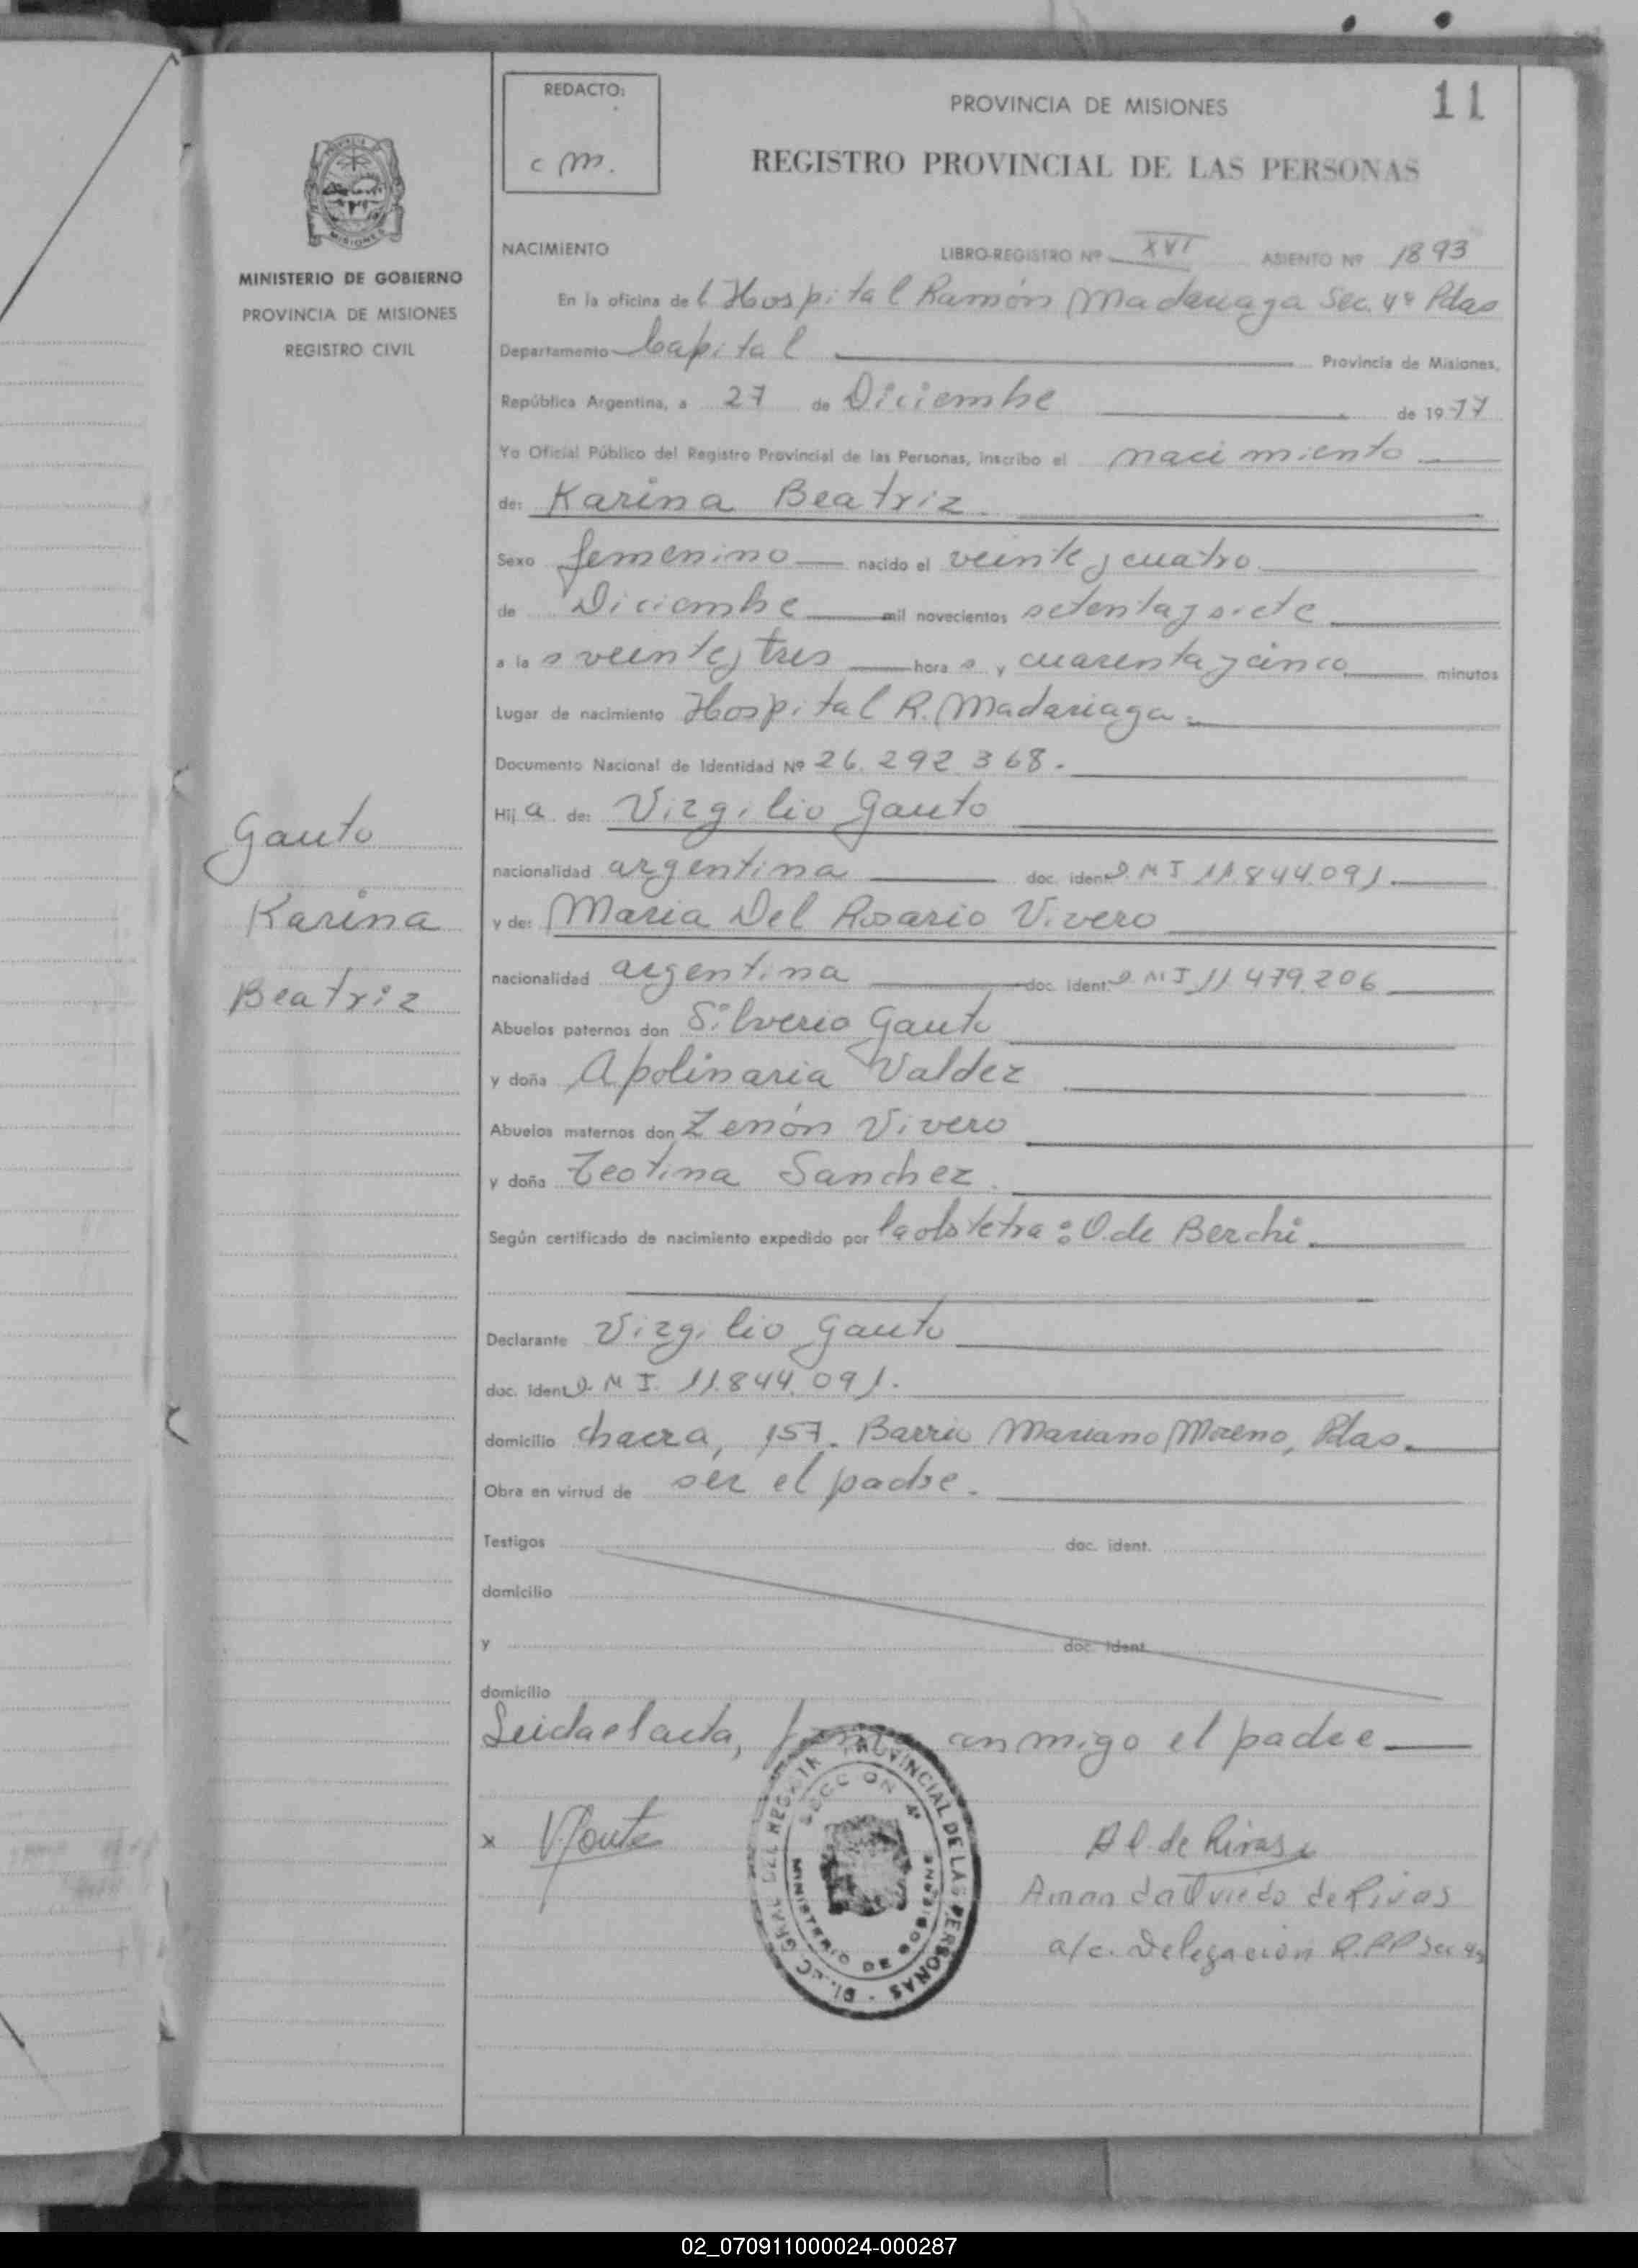 11
REDACTO:
c m.
PROVINCIA DE MISIONES
REGISTRO PROVINCIAL DE LAS PERSONAS
MISIONES
MINISTERIO DE GOBIERNO
PROVINCIA DE MISIONES
REGISTRO CIVIL
NACIMIENTO LIBRO-REGISTRO Nº XVI ASIENTO Nº 1893
En la oficina del Hospital Ramón Madariaga Sec. 4ª Pdas
Departamento Capital Provincia de Misiones,
República Argentina, a 27 de Diciembre de 1977
Yo Oficial Público del Registro Provincial de las Personas, inscribo el nacimiento
de: Karina Beatriz
Sexo femenino nacido el veinte y cuatro
de Diciembre mil novecientos setenta y siete
a las veinte y tres horas y cuarenta y cinco minutos
Lugar de nacimiento Hospital R. Madariaga.
Documento Nacional de Identidad Nº 26.292.368.
Hija de: Virgilio Gauto
nacionalidad argentina doc. ident. D.N.I 11.844.091.
y de: Maria Del Rosario Vivero
nacionalidad argentina doc. ident. D.N.I 11.479.206
Abuelos paternos don Silverio Gauto
y doña Apolinaria Valdez
Abuelos maternos don Zenón Vivero
y doña Teotina Sanchez.
Según certificado de nacimiento expedido por la obstetra: O. de Berchi.
Declarante Virgilio Gauto
doc. ident. D.N.I. 11.844.091.
domicilio chacra, 157. Barrio Mariano Moreno, Pdas.
Obra en virtud de ser el padre.
Testigos doc. ident.
domicilio
y doc. ident.
domicilio
Leida el acta, firma conmigo el padre
Gauto
Karina
Beatriz
x VGauto
DIREC. GRAL. DEL REGISTR. PROVINCIAL DE LAS PERSONAS
SECCION 4ª
MINISTERIO DE GOBIERNO
A O. de Rivas
Amanda Oviedo de Rivas
a/c. Delegacion R.P.P Sec 4ª
02_070911000024-000287